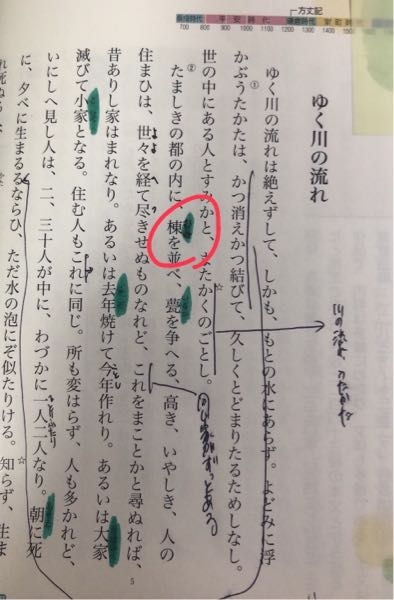 方丈記
奈良時代 平安時代 鎌倉時代 室町時
700 800 900 1000 1100 1200 1300 1400 150
ゆく川の流れ
ゆく川の流れは絶えずして、しかも、もとの水にあらず。よどみに浮
かぶうたかたは、かつ消えかつ結びて、久しくとどまりたるためしなし。
①
世の中にある人とすみかと、またかくのごとし。
☆
たましきの都の内に、棟を並べ、甍を争へる、高き、いやしき、人の
②
住まひは、世々を経て尽きせぬものなれど、これをまことかと尋ぬれば、
昔ありし家はまれなり。あるいは去年焼けて今年作れり。あるいは大家
滅びて小家となる。住む人もこれに同じ。所も変はらず、人も多かれど、
いにしへ見し人は、二、三十人が中に、わづかに一人二人なり。朝に死
に、夕べに生まるるならひ、ただ水の泡にぞ似たりける。知らず、生ま
☆
れ死ぬる
5